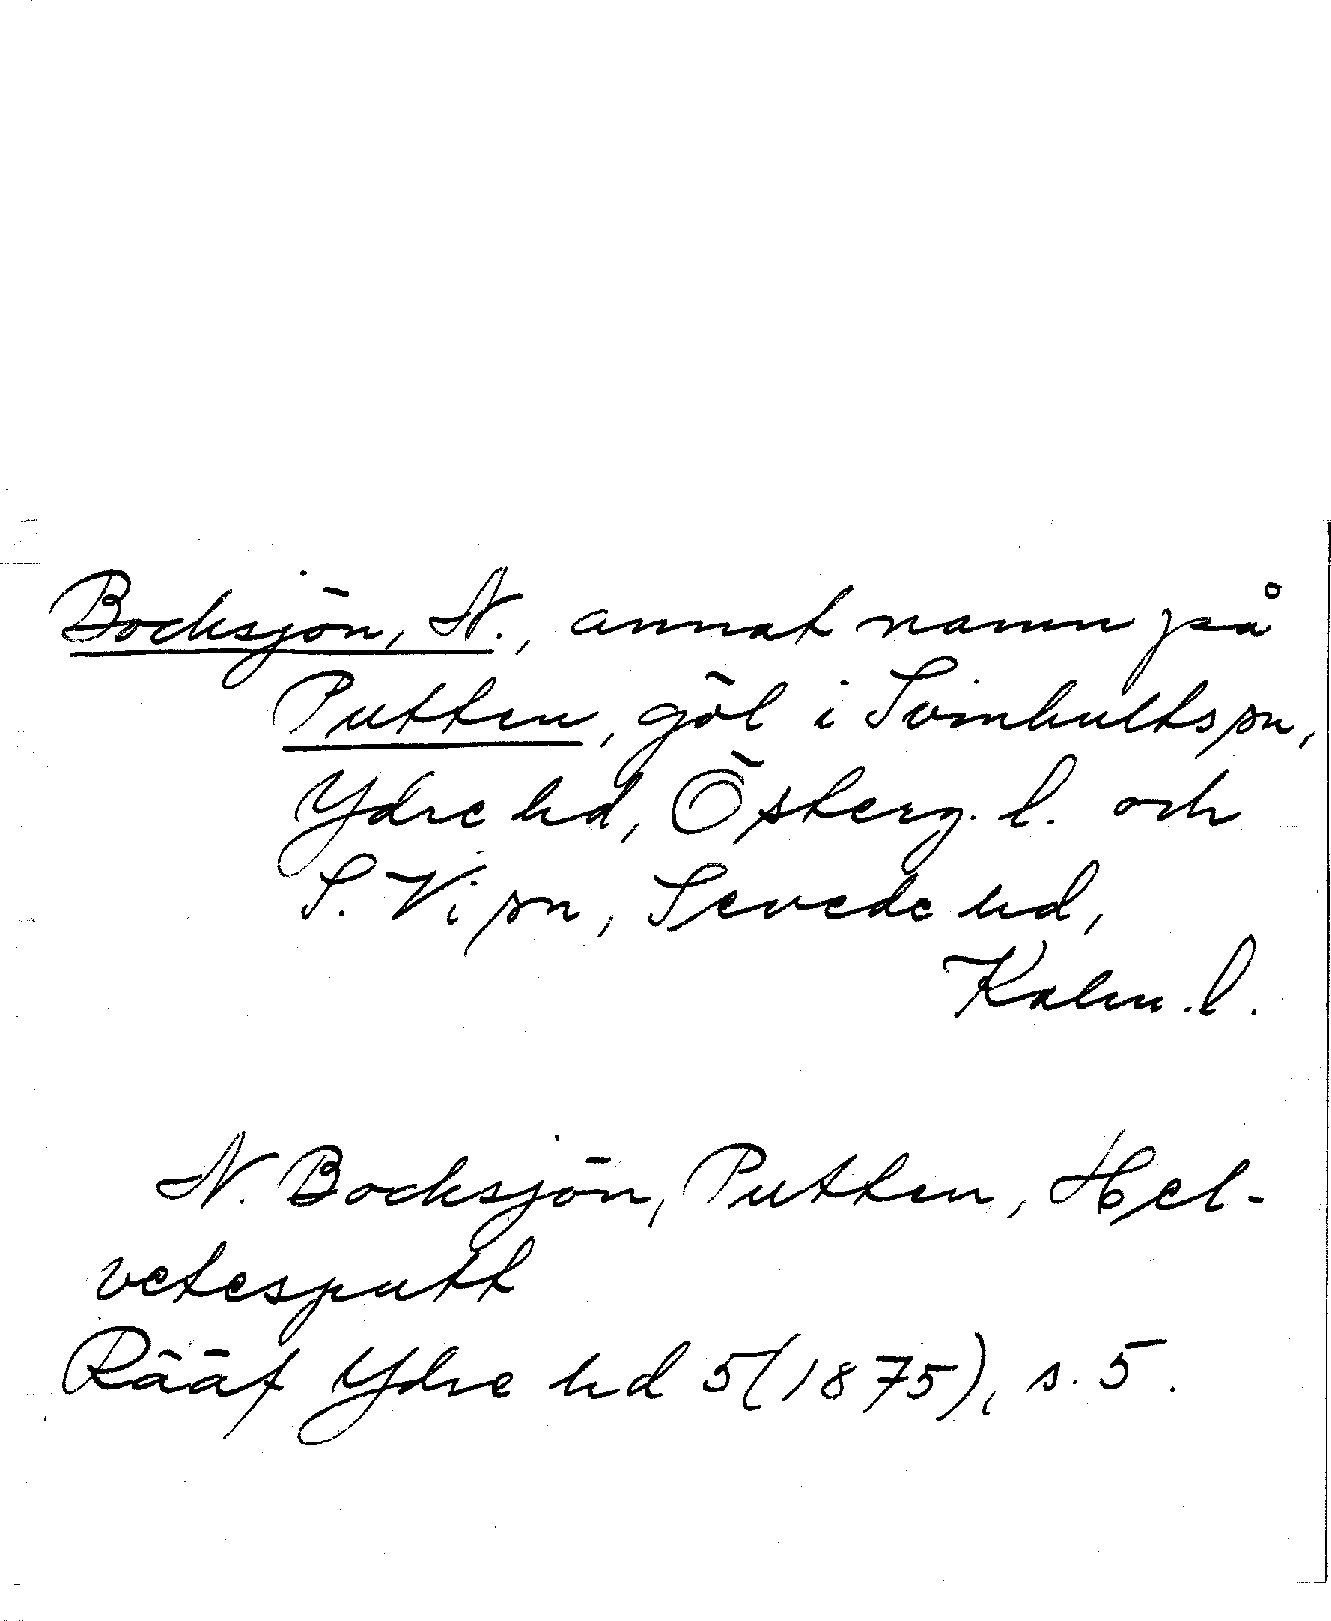 Bocksjön, N., annat namn på
Putten, göl i Svinhults sn,
Ydre hd, Österg. l. och
S. Vi sn, Sevede hd,
Kalm. l.
N. Bocksjön, Putten, Hel-
vetesputt
Rääf Ydre hd 5(1875), s. 5.